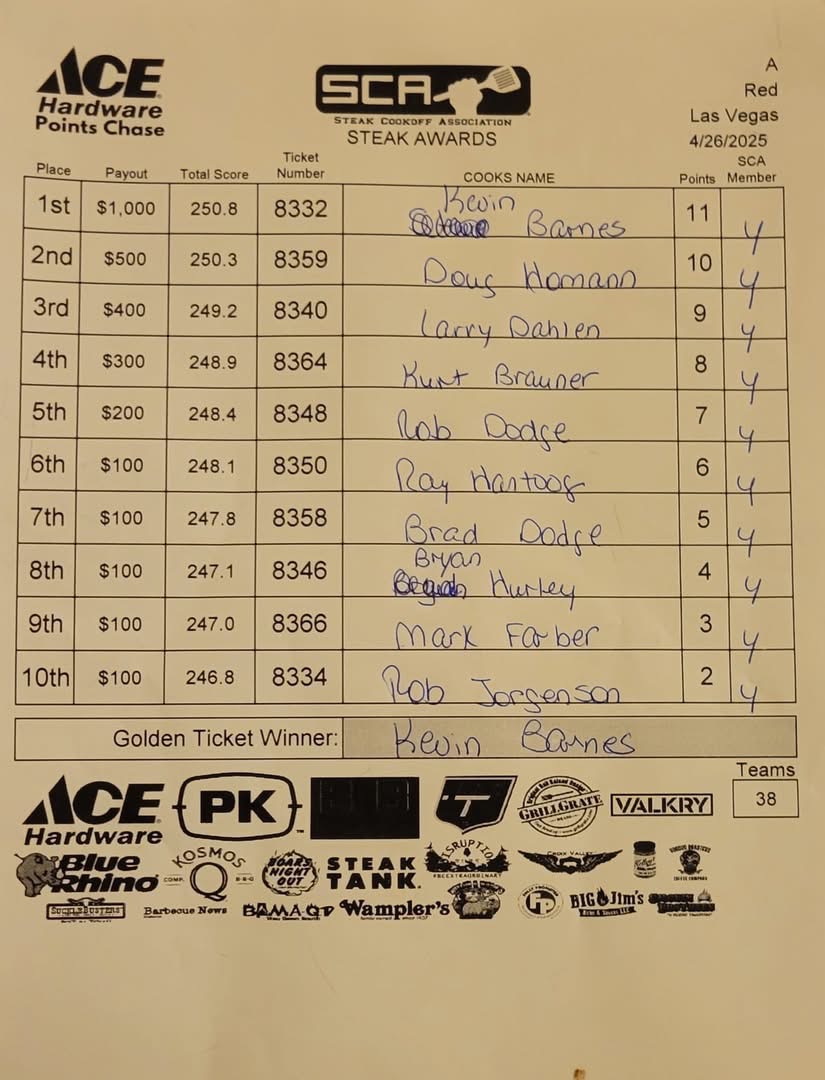 ACE
Hardware
Points Chase
SCA
STEAK COOKOFF ASSOCIATION
STEAK AWARDS
A
Red
Las Vegas
4/26/2025
Place Payout Total Score Ticket Number COOKS NAME Points SCA Member
1st $1,000 250.8 8332 Kevin Barnes 11 y
2nd $500 250.3 8359 Doug Homann 10 y
3rd $400 249.2 8340 Larry Dahlen 9 y
4th $300 248.9 8364 Kurt Brauner 8 y
5th $200 248.4 8348 Rob Dodge 7 y
6th $100 248.1 8350 Ray Hartoog 6 y
7th $100 247.8 8358 Brad Dodge 5 y
8th $100 247.1 8346 Bryan Hurley 4 y
9th $100 247.0 8366 Mark Farber 3 y
10th $100 246.8 8334 Rob Jorgenson 2 y
Golden Ticket Winner: Kevin Barnes
Teams
38
ACE
Hardware
PK
GRILLGRATE
VALKRY
Blue
Rhino
KOSMOS
Q
BOARS
NIGHT
OUT
STEAK
TANK
CROIX VALLEY
SUCKLEBUSTERS
Barbecue News
BAMA
Wampler's
BIG Jim's